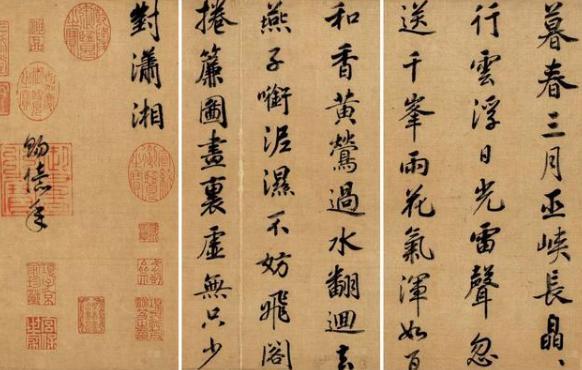 暮春三月巫峽長晶〻
行雲浮日光雷聲忽
送千峯雨花氣渾如百
和香黃鶯過水翻迴去
燕子啣泥濕不妨飛閣
捲簾圖畫裏虛無只少
對瀟湘
賜